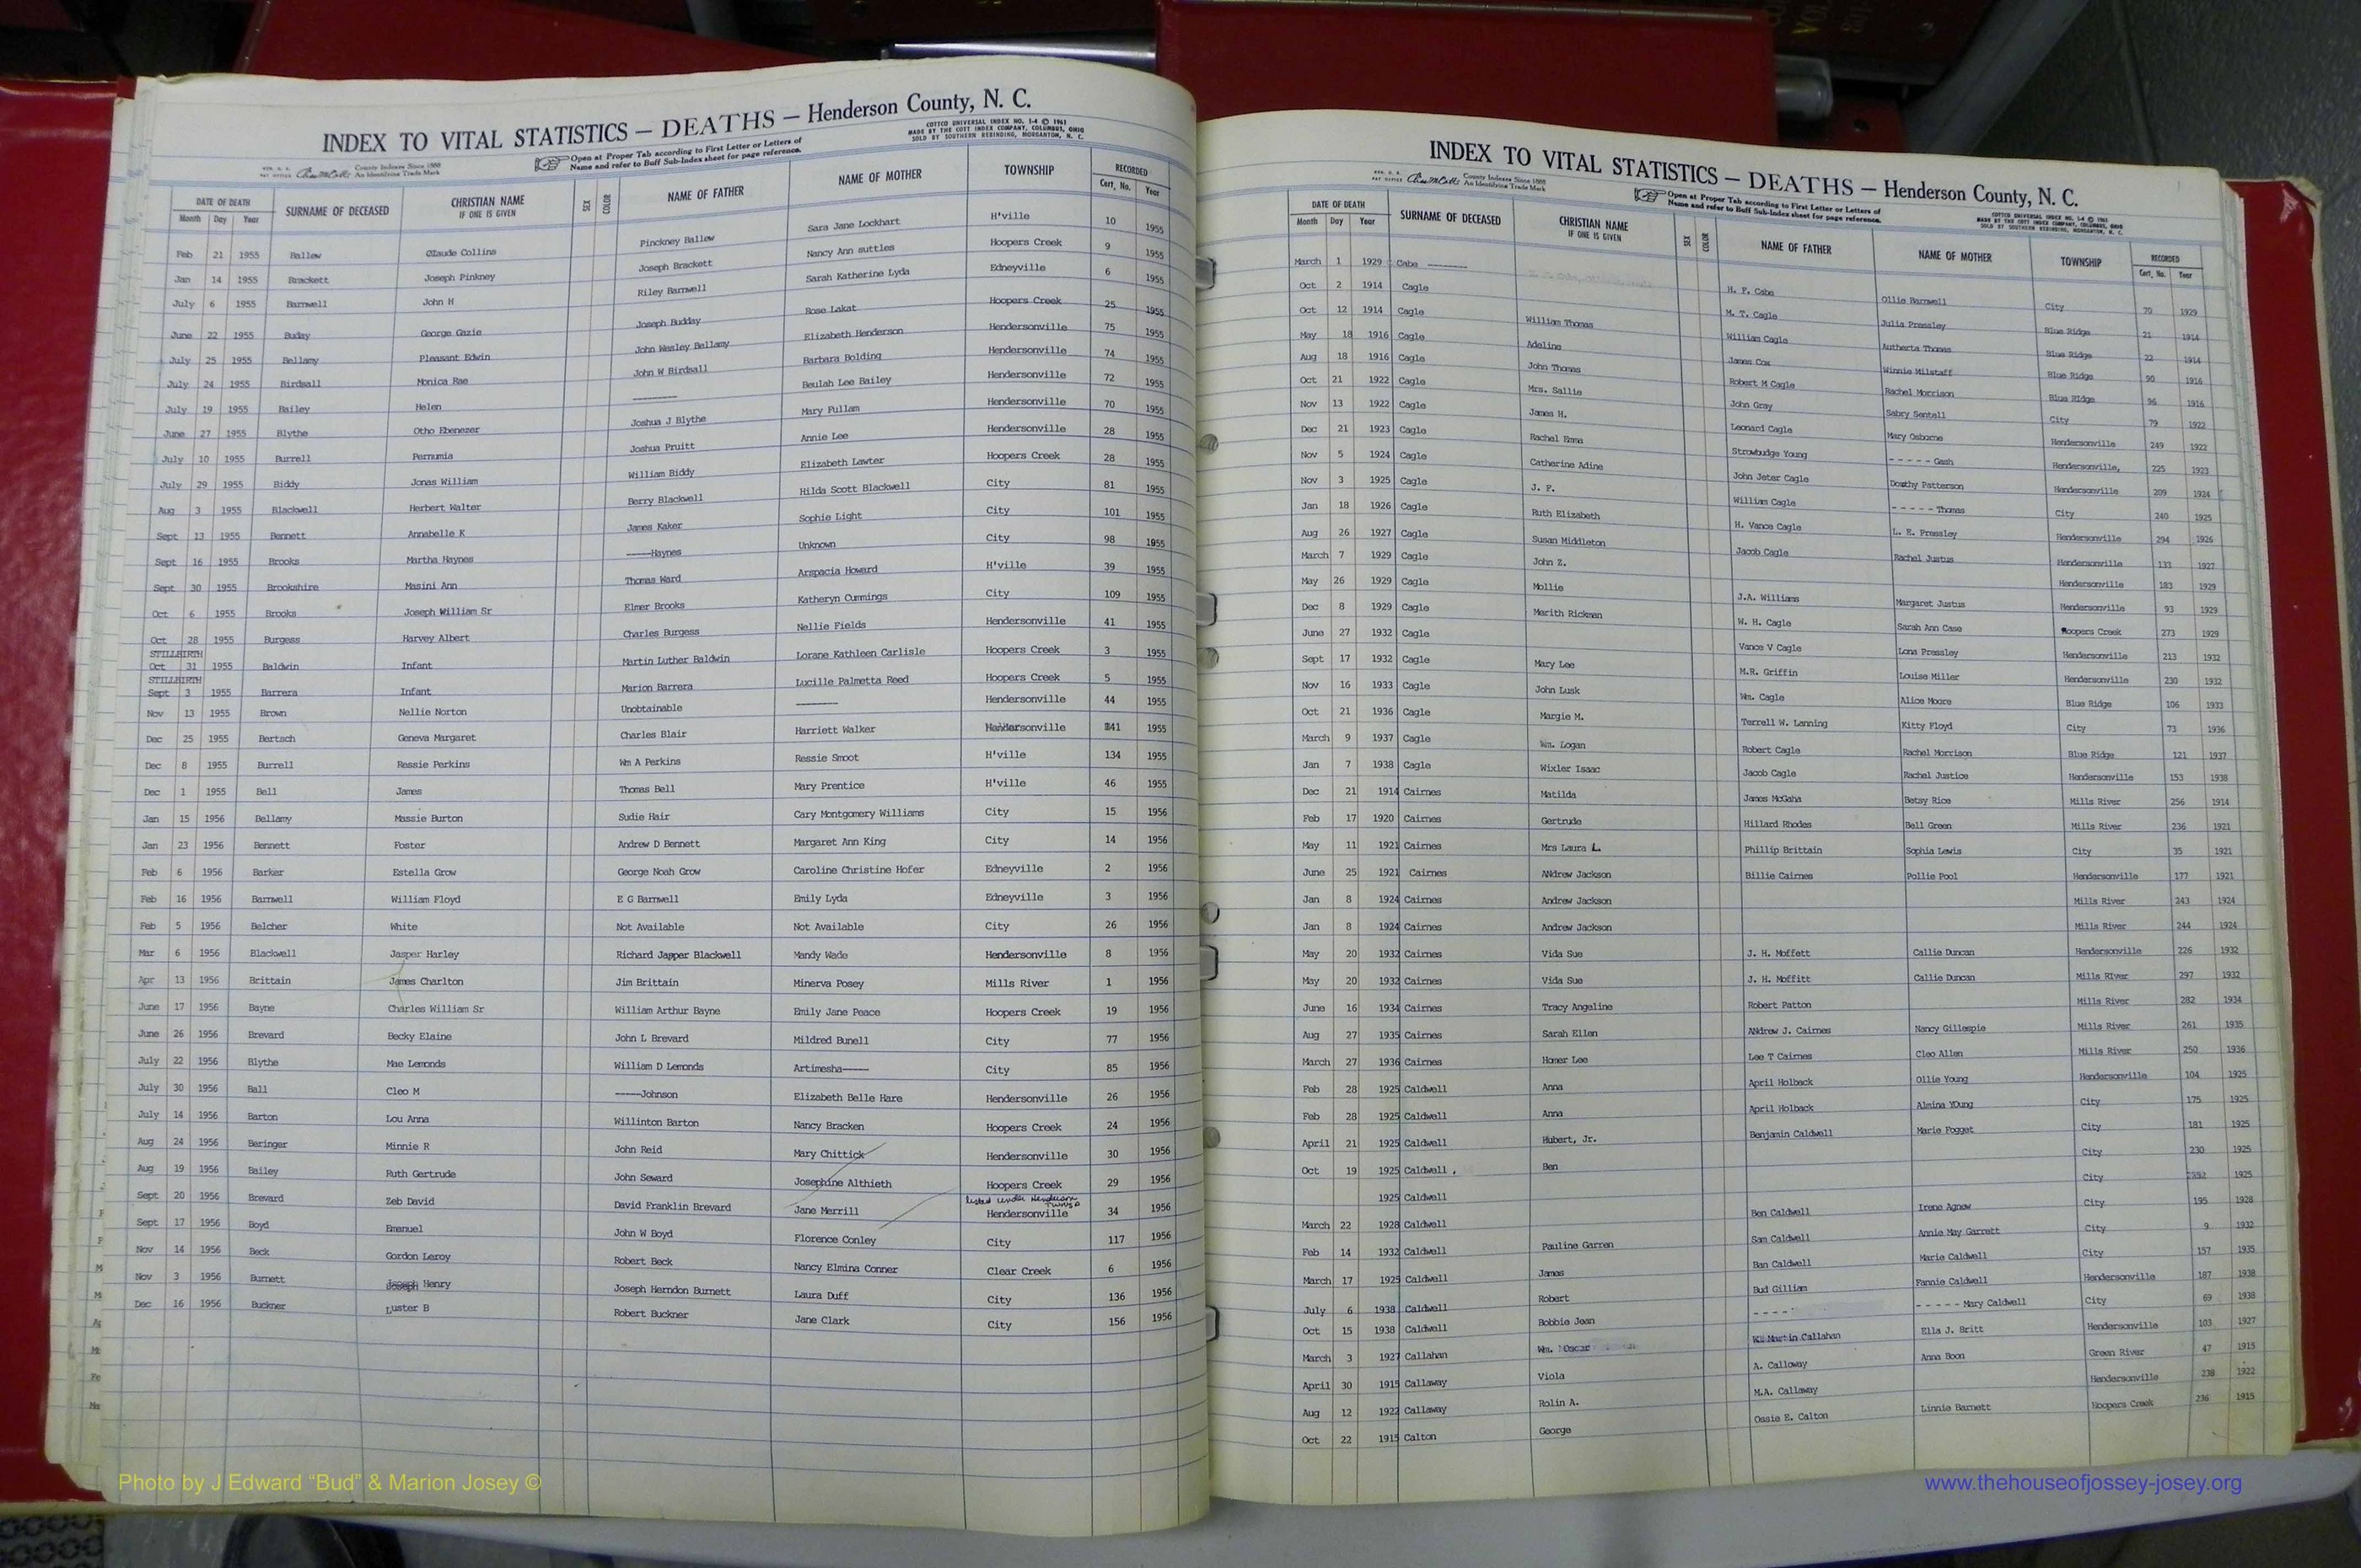 INDEX TO VITAL STATISTICS — DEATHS — Henderson County, N. C.
COTTCO UNIVERSAL INDEX NO. 1-4 © 1961
MADE BY THE COTT INDEX COMPANY, COLUMBUS, OHIO
SOLD BY SOUTHERN REBINDING, MORGANTON, N. C.
County Indexes Since 1888
An Identifying Trade Mark
Open at Proper Tab according to First Letter or Letters of
Name and refer to Buff Sub-Index sheet for page reference.
DATE OF DEATH SURNAME OF DECEASED CHRISTIAN NAME SEX COLOR NAME OF FATHER NAME OF MOTHER TOWNSHIP RECORDED
Month Day Year IF ONE IS GIVEN Cert. No. Year
Feb 21 1955 Ballew Claude Collins Pinckney Ballew Sara Jane Lockhart H'ville 10 1955
Jan 14 1955 Brackett Joseph Pinkney Joseph Brackett Nancy Ann suttles Hoopers Creek 9 1955
July 6 1955 Barnwell John H Riley Barnwell Sarah Katherine Lyda Edneyville 6 1955
June 22 1955 Buday George Gazie Joseph Budday Rose Lakat Hoopers Creek 25 1955
July 25 1955 Bellamy Pleasant Edwin John Wesley Bellamy Elizabeth Henderson Hendersonville 75 1955
July 24 1955 Birdsall Monica Rae John W Birdsall Barbara Bolding Hendersonville 74 1955
July 19 1955 Bailey Helen --------- Beulah Lee Bailey Hendersonville 72 1955
June 27 1955 Blythe Otho Ebenezer Joshua J Blythe Mary Pullam Hendersonville 70 1955
July 10 1955 Burrell Pernumia Joshua Pruitt Annie Lee Hendersonville 28 1955
July 29 1955 Biddy Jonas William William Biddy Elizabeth Lawter Hoopers Creek 28 1955
Aug 3 1955 Blackwell Herbert Walter Berry Blackwell Hilda Scott Blackwell City 81 1955
Sept 13 1955 Bennett Annabelle K James Kaker Sophie Light City 101 1955
Sept 16 1955 Brooks Martha Haynes -----Haynes Unknown City 98 1955
Sept 30 1955 Brookshire Masini Ann Thomas Ward Arspacia Howard H'ville 39 1955
Oct 6 1955 Brooks Joseph William Sr Elmer Brooks Katheryn Cummings City 109 1955
Oct 28 1955 Burgess Harvey Albert Charles Burgess Nellie Fields Hendersonville 41 1955
STILLBIRTH
Oct 31 1955 Baldwin Infant Martin Luther Baldwin Lorane Kathleen Carlisle Hoopers Creek 3 1955
STILLBIRTH
Sept 3 1955 Barrera Infant Marion Barrera Lucille Palmetta Reed Hoopers Creek 5 1955
Nov 13 1955 Brown Nellie Norton Unobtainable -------- Hendersonville 44 1955
Dec 25 1955 Bertsch Geneva Margaret Charles Blair Harriett Walker Hendersonville 141 1955
Dec 8 1955 Burrell Ressie Perkins Wm A Perkins Ressie Smoot H'ville 134 1955
Dec 1 1955 Bell James Thomas Bell Mary Prentice H'ville 46 1955
Jan 15 1956 Bellamy Massie Burton Sudie Hair Cary Montgomery Williams City 15 1956
Jan 23 1956 Bennett Foster Andrew D Bennett Margaret Ann King City 14 1956
Feb 6 1956 Barker Estella Grow George Noah Grow Caroline Christine Hofer Edneyville 2 1956
Feb 16 1956 Barnwell William Floyd E G Barnwell Emily Lyda Edneyville 3 1956
Feb 5 1956 Belcher White Not Available Not Available City 26 1956
Mar 6 1956 Blackwell Jasper Harley Richard Japper Blackwell Mandy Wade Hendersonville 8 1956
Apr 13 1956 Brittain James Charlton Jim Brittain Minerva Posey Mills River 1 1956
June 17 1956 Bayne Charles William Sr William Arthur Bayne Emily Jane Peace Hoopers Creek 19 1956
June 26 1956 Brevard Becky Elaine John L Brevard Mildred Bunell City 77 1956
July 22 1956 Blythe Mae Lemonds William D Lemonds Artimesha----- City 85 1956
July 30 1956 Ball Cleo M -----Johnson Elizabeth Belle Hare Hendersonville 26 1956
July 14 1956 Barton Lou Anna Willinton Barton Nancy Bracken Hoopers Creek 24 1956
Aug 24 1956 Beringer Minnie R John Reid Mary Chittick Hendersonville 30 1956
Aug 19 1956 Bailey Ruth Gertrude John Seward Josephine Althieth Hoopers Creek 29 1956
listed under Henderson Twnsp
Sept 20 1956 Brevard Zeb David David Franklin Brevard Jane Merrill Hendersonville 34 1956
Sept 17 1956 Boyd Emanuel John W Boyd Florence Conley City 117 1956
Nov 14 1956 Beck Gordon Leroy Robert Beck Nancy Elmina Conner Clear Creek 6 1956
Nov 3 1956 Burnett Joseph Henry Joseph Herndon Burnett Laura Duff City 136 1956
Dec 16 1956 Buckner Luster B Robert Buckner Jane Clark City 156 1956
Photo by J Edward “Bud” & Marion Josey ©
INDEX TO VITAL STATISTICS — DEATHS — Henderson County, N. C.
County Indexes Since 1888
An Identifying Trade Mark
Open at Proper Tab according to First Letter or Letters of
Name and refer to Buff Sub-Index sheet for page reference.
COTTCO UNIVERSAL INDEX NO. 1-4 © 1961
MADE BY THE COTT INDEX COMPANY, COLUMBUS, OHIO
SOLD BY SOUTHERN REBINDING, MORGANTON, N. C.
DATE OF DEATH SURNAME OF DECEASED CHRISTIAN NAME SEX COLOR NAME OF FATHER NAME OF MOTHER TOWNSHIP RECORDED
Month Day Year IF ONE IS GIVEN Cert. No. Year
March 1 1929 Cabe -------- H. F. Cabe Ollie Barnwell City 70 1929
Oct 2 1914 Cagle M. T. Cagle Julia Pressley Blue Ridge 21 1914
Oct 12 1914 Cagle William Thomas William Cagle Autherta Thomas Blue Ridge 22 1914
May 18 1916 Cagle Adeline James Cox Winnie Milstaff Blue Ridge 90 1916
Aug 18 1916 Cagle John Thomas Robert M Cagle Rachel Morrison Blue RIdge 96 1916
Oct 21 1922 Cagle Mrs. Sallie John Gray Sabry Sentell City 79 1922
Nov 13 1922 Cagle James H. Leonard Cagle Mary Osborne Hendersonville 249 1922
Dec 21 1923 Cagle Rachel Emma Strowbudge Young - - - - - Gash Hendersonville, 225 1923
Nov 5 1924 Cagle Catherine Adine John Jeter Cagle Dorthy Patterson Hendersonville 209 1924
Nov 3 1925 Cagle J. F. William Cagle - - - - - Thomas City 240 1925
Jan 18 1926 Cagle Ruth Elizabeth H. Vance Cagle L. E. Pressley Hendersonville 294 1926
Aug 26 1927 Cagle Susan Middleton Jacob Cagle Rachel Justus Hendersonville 133 1927
March 7 1929 Cagle John Z. Hendersonville 183 1929
May 26 1929 Cagle Mollie J.A. Williams Margaret Justus Hendersonville 93 1929
Dec 8 1929 Cagle Merith Rickman W. H. Cagle Sarah Ann Case Hoopers Creek 273 1929
June 27 1932 Cagle Vance V Cagle Lona Pressley Hendersonville 213 1932
Sept 17 1932 Cagle Mary Lee M.R. Griffin Louise Miller Hendersonville 230 1932
Nov 16 1933 Cagle John Lusk Wm. Cagle Alice Moore Blue Ridge 106 1933
Oct 21 1936 Cagle Margie M. Terrell W. Lanning Kitty Floyd City 73 1936
March 9 1937 Cagle Wm. Logan Robert Cagle Rachel Morrison Blue Ridge 121 1937
Jan 7 1938 Cagle Wixler Isaac Jacob Cagle Rachel Justice Hendersonville 153 1938
Dec 21 1914 Cairnes Matilda James McGaha Betsy Rice Mills River 256 1914
Feb 17 1920 Cairnes Gertrude Hillard Rhodes Bell Green Mills River 236 1921
May 11 1921 Cairnes Mrs Laura L. Phillip Brittain Sophia Lewis City 35 1921
June 25 1921 Cairnes ANdrew Jackson Billie Cairnes Pollie Pool Hendersonville 177 1921
Jan 8 1924 Cairnes Andrew Jackson Mills River 243 1924
Jan 8 1924 Cairnes Andrew Jackson Mills River 244 1924
May 20 1932 Cairnes Vida Sue J. H. Moffett Callie Duncan Hendersonville 226 1932
May 20 1932 Cairnes Vida Sue J. H. Moffitt Callie Duncan Mills RIver 297 1932
June 16 1934 Cairnes Tracy Angeline Robert Patton Mills River 282 1934
Aug 27 1935 Cairnes Sarah Ellen ANdrew J. Cairnes Nancy Gillespie Mills River 261 1935
March 27 1936 Cairnes Homer Lee Lee T Cairnes Cleo Allen Mills River 250 1936
Feb 28 1925 Caldwell Anna April Holback Ollie Young Hendersonville 104 1925
Feb 28 1925 Caldwell Anna April Holback Almina YOung City 175 1925
April 21 1925 Caldwell Hubert, Jr. Benjamin Caldwell Marie Fogget City 181 1925
Oct 19 1925 Caldwell , Ben City 230 1925
1925 Caldwell City 1925
March 22 1928 Caldwell Pauline Garren Ben Caldwell Irene Agnew City 195 1928
Feb 14 1932 Caldwell James Sam Caldwell Annie May Garrett City 9 1932
March 17 1925 Caldwell Robert Ban Caldwell Marie Caldwell City 157 1935
July 6 1938 Caldwell Bobbie Jean Bud Gilliam Fannie Caldwell Hendersonville 187 1938
Oct 15 1938 Caldwell - - - - - - - - - Mary Caldwell City 69 1938
March 3 1927 Callahan Wm. Oscar Martin Callahan Ella J. Britt Hendersonville 103 1927
April 30 1915 Callaway Viola A. Calloway Anna Boon Green River 47 1915
Aug 12 1922 Callaway Rolin A. M.A. Callaway Hendersonville 238 1922
Oct 22 1915 Calton George Ossie E. Calton Linnie Barnett Hoopers Creek 236 1915
www.thehouseofjossey-josey.org